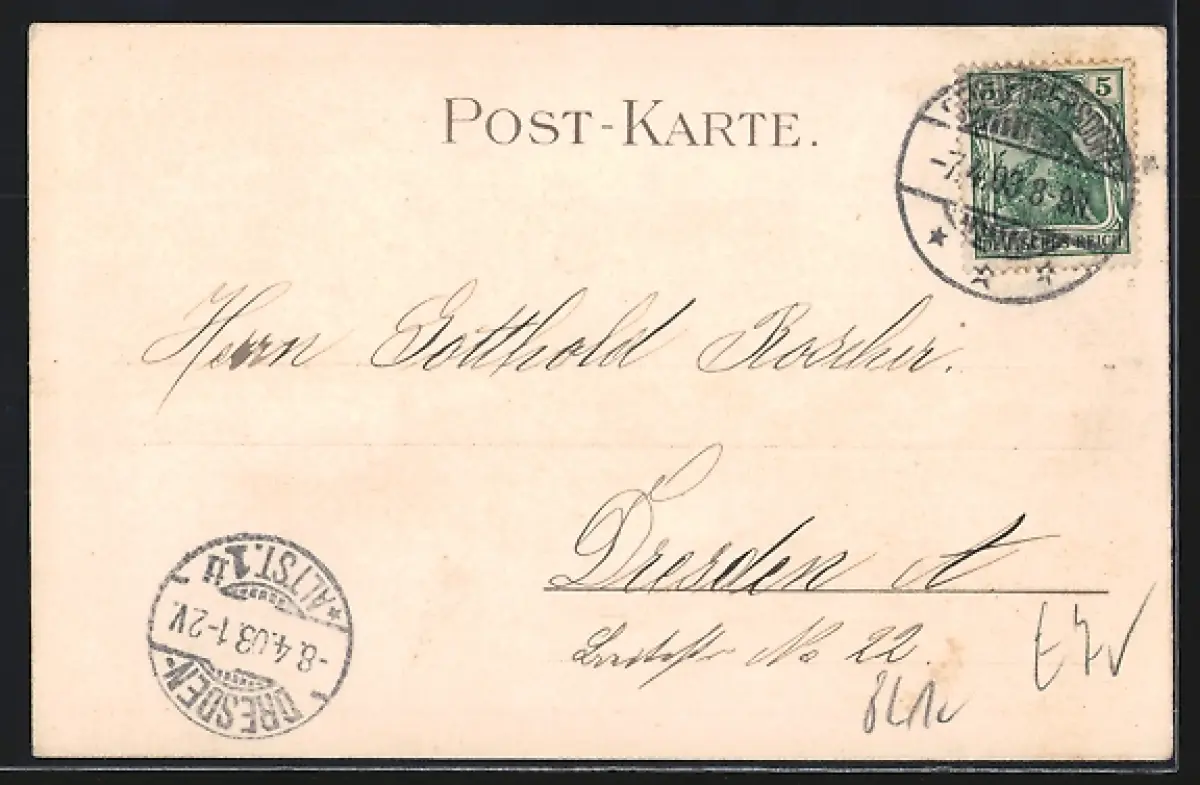 POST-KARTE.
5
-7.4.03 8-9N
DEUTSCHES REICH
Herrn Gotthold Roscher.
Dresden A.
No 22.
DRESDEN-
*ALTST.1 u
-8.4.03.1-2V.